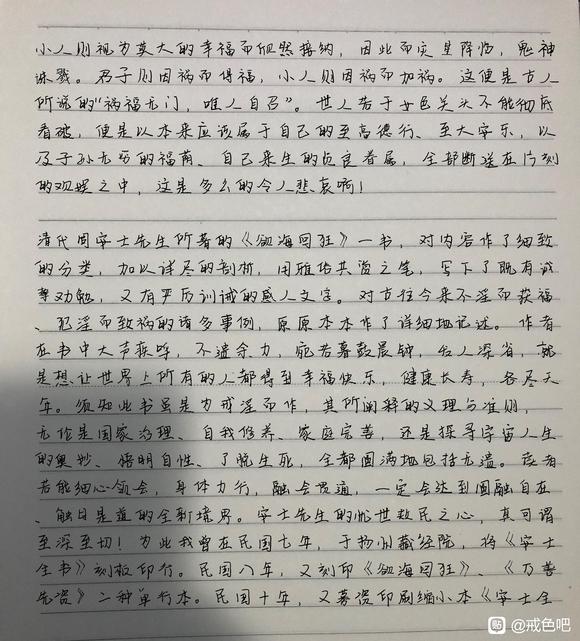 小人则视为莫大的幸福而怛然接纳，因此而灾星降临，鬼神
诛戮。君子则因祸而得福，小人则因祸而加祸。这便是古人
所说的“祸福无门，唯人自召”。世人若于女色关头不能彻底
看破，便是以本来应该属于自己的至高德行、至大安乐，以
及子孙无穷的福荫、自己来生的贞良眷属，全部断送在片刻
的观娱之中，这是多么的令人悲哀啊！
清代周安士先生所著的《欲海回狂》一书，对内容作了细致
的分类，加以详尽的剖析，用雅俗共赏之笔，写下了既有诚
挚劝勉，又有严厉训诫的感人文字。对古往今来不淫而获福
、犯淫而致祸的诸多事例，原原本本作了详细地记述。作者
在书中大声疾呼，不遗余力，宛若暮鼓晨钟，令人深省，就
是想让世界上所有的人都得到幸福快乐，健康长寿，各尽天
年。须知此书虽是为戒淫而作，其所阐释的义理与准则，
无论是国家治理、自我修养、家庭完善，还是探寻宇宙人生
的奥妙、悟明自性、了脱生死，全都圆满地包括无遗。读者
若能细心领会，身体力行，融会贯通，一定会达到圆融自在
、触目是道的全新境界。安士先生的忧世救民之心，真可谓
至深至切！为此我曾在民国七年，于扬州藏经院，将《安士
全书》刻板印行。民国八年，又刻印《欲海回狂》、《万善
先资》二种单行本。民国十年，又募资印刷缩小本《安士全
贴 @戒色吧